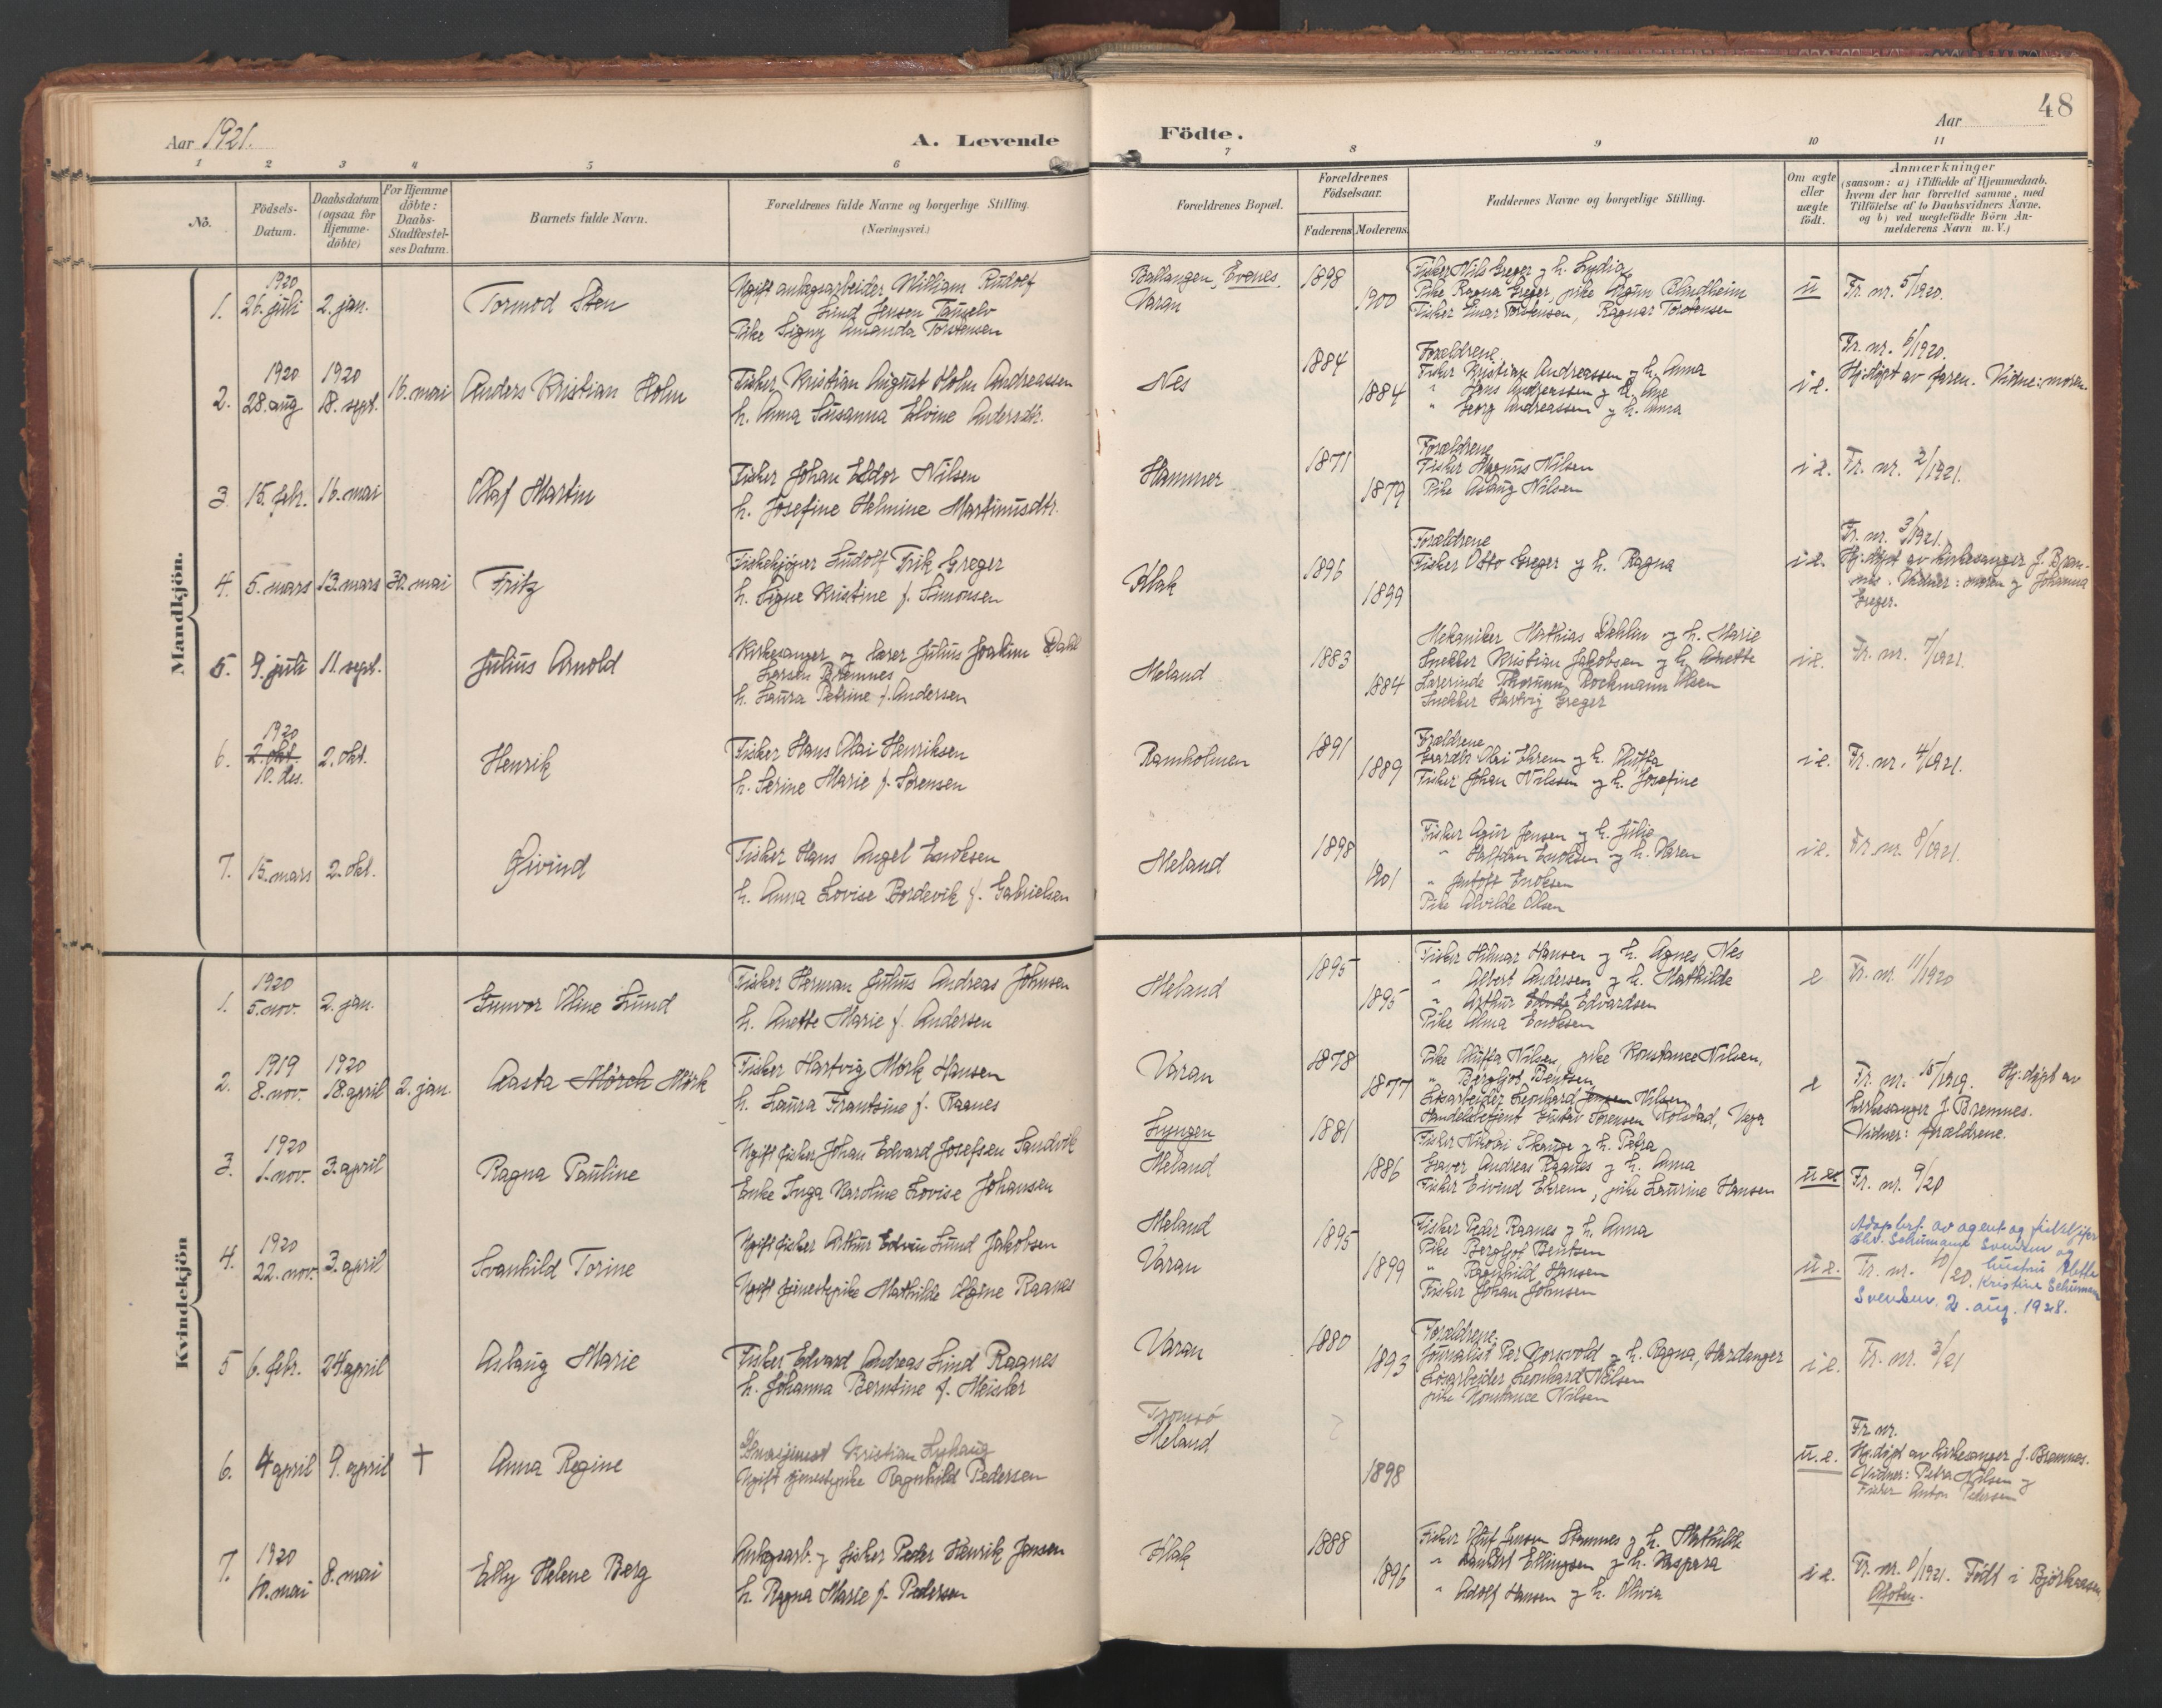 48
Aar 1921.
A. Levende
Födte.
Aar
1 2 3 4 5 6 7 8 9 10 11
No.
Födsels-
Datum.
Daabsdatum
(ogsaa for
Hjemme-
döbte)
For Hjemme
döbte:
Daabs-
Stadfæstel-
ses Datum.
Barnets fulde Navn.
Forældrenes fulde Navne og borgerlige Stilling.
(Næringsvei.)
Forældrenes Bopæl.
Forældrenes
Födselsaar.
Faderens Moderens
Faddernes Navne og borgerlige Stilling.
Om ægte
eller
uægte
födt.
Anmærkninger
(saasom: a) i Tilfælde af Hjemmedaab.
hvem der har forrettet samme, med
Tilföielse af to Daabsvidners Navne.
og b) ved uægtefödte Börn An-
melderens Navn m. V.)
Mandkjön.
1. 1920
26. juli 2. jan. Tormod Sten
Ugift anlægsarbeider William Rudolf
Lind Jensen
Pike Signy Amanda Torstensen
Ballangen, Evenes.
Varan
1898
1900
Fisker Nils Greger og h. Lydia,
Pike Ragna Greger, pike Blindheim
Fisker Einar Torstensen, Ragnar Torstensen
u
Fr. nr. 5/1920.
2. 1920
28. aug 1920
18. sept. 16. mai Anders Kristian Holm
Fisker Kristian August Holm Andreassen
h. Anna Susanna Elvine Andersdtr.
Nes
1884
1884
Forældrene
Fisker Kristian Andreassen og h. Anna
" Hans Andreassen og h. Ane
" Georg Andreassen og h. Anna
i e.
Fr. nr. 6/1920.
Hj.døpt av faren. Vidne: moren
3. 15. febr. 16. mai Olaf Martin
Fisker Johan Eldor Nilsen
h. Josefine Helmine Martinusdtr.
Hammer
1871
1879
Forældrene
Fisker Magnus Nilsen
Pike Aslaug Nilsen
i e.
Fr. nr. 2/1921.
4. 5. mars 13. mars 30. mai Fritz
Fiskekjøper Ludolf Erik Greger
h. Signe Kristine f. Simonsen
Flak
1896
1899
Forældrene
Fisker Otto Greger og h. Ragna
i e.
Fr. nr. 3/1921.
Hj.døpt av kirkesanger J. Brem-
nes. Vidner: moren og Johanna
Greger.
5. 9. juli 11. sept. Julius Arnold
Kirkesanger og lærer Julius Joakim Dahl
Larsen Bremnes
h. Laura Petrine f. Andersen
Meland
1883
1884
Mekaniker Mathias Dehlin og h. Marie
Snekker Kristian Jakobsen og h. Anette
Lærerinde Thorunn Bockmann Olsen
Snekker Hartvig Greger
i e.
Fr. nr. 7/1921.
6. 1920
2. okt.
10. des. 2. okt. Henrik
Fisker Hans Olai Henriksen
h. Serine Marie f. Sørensen
Ramholmen
1891
1889
Forældrene
Gaardbr. Olai Ekrem og h. Olufta
Fisker Johan Nilssen og h. Josefine
i e.
Fr. nr. 4/1921.
7. 15. mars 2. okt. Øivind
Fisker Hans Angel Enoksen
h. Anna Lovise Bordevik f. Gabrielsen
Meland
1898
1901
Fisker Agur Jensen og h. Julie
" Halfdan Enoksen og h. Karen
" Enoksen
Pike Alvilde Olsen
i e.
Fr. nr. 8/1921.
Kvindekjön
1. 1920
5. nov. 2. jan. Gunvor Oline Lund
Fisker Herman Julius Andreas Johnsen
h. Anette Marie f. Andersen
Meland
1895
1895
Fisker Hilmar Hansen og h. Agnes, Nes
" Albert Andersen og h. Mathilde
" Arthur Edvardsen
Pike Alma Enoksen
e
Fr. nr. 11/1920
2. 1919
8. nov. 1920
18. april 2. jan. Aasta Mörch Mörk
Fisker Hartvig Mörk Hansen
h. Laura Frantsine f. Raanes
Varan
1878
1877
Pike Olufta Nilsen, pike Konstance Nilsen,
" Bergljot Bentsen,
Løsarbeider Leonhard Jensen Nilsen
Handelsbetjent Gustav Sørensen Rolstad, Vega
e
Fr. nr. 15/1919. Hj.døpt av
kirkesanger J. Bremnes.
Vidner: forældrene.
3. 1920
1. nov. 3. april Ragna Pauline
Ugift fisker Johan Edvard Josefsen Sandvik
Enke Inga Karoline Lovise Johansen
Lyngen
Meland
1881
1886
Fisker Nikolai Skauge og h. Petra
Graver Andreas Raanes og h. Anna
Fisker Eivind Ekrem, pike Laurine Hansen
u e.
Fr. nr. 9/20
4. 1920
22. nov. 3. april Svanhild Torine
Ugift fisker Arthur Edvin Lund Jakobsen
Ugift tjenestepike Mathilde Olgine Raanes
Meland
Varan
1895
1899
Fisker Peder Raanes og h. Anna
Pike Bergljot Bentsen
" Ragnhild Hansen
Fisker Johan Johnsen
u e.
Adoptert av agent og fiskekjøper
Chr. Schumann Svendsen og
hustru Aletta
Kristine Schumann
Svendsen. 2. aug. 1928.
Fr. nr. 10/20.
5 6. febr. 24. april Aslaug Marie
Fisker Edvard Andreas Lind Raanes
h. Johanna Berntine f. Meisler
Varan
1880
1893
Forældrene.
Journalist Per Norvold og h. Ragna, Hardanger
Løsarbeider Leonhard Nilsen
pike Konstance Nilsen
i e.
Fr. nr. 3/21
6. 4 april 9. april † Anna Regine
Kristian Lyhaug
Ugift tjenestepike Ragnhild Pedersen
Tromsö
Meland
?
1898
u. e.
Fr. nr.
Hj.døpt av kirkesanger J. Bremnes.
Vidner: Petra Nilsen og
Fisker Anton Pedersen
7. 1920
10. mai 8. mai Elly Helene Berg
Anlægsarb. og fisker Peder Henrik Jensen
h. Ragna Marie f. Pedersen
Flak
1888
1896
Fisker Oluf Jensen Stamnes og h. Mathilde
" Lambert Ellingsen og h. Kaspara
" Adolf Hansen og h. Olivia
i e.
Fr. nr. 1/1921. Født i Bjørkaasen
Ofoten.